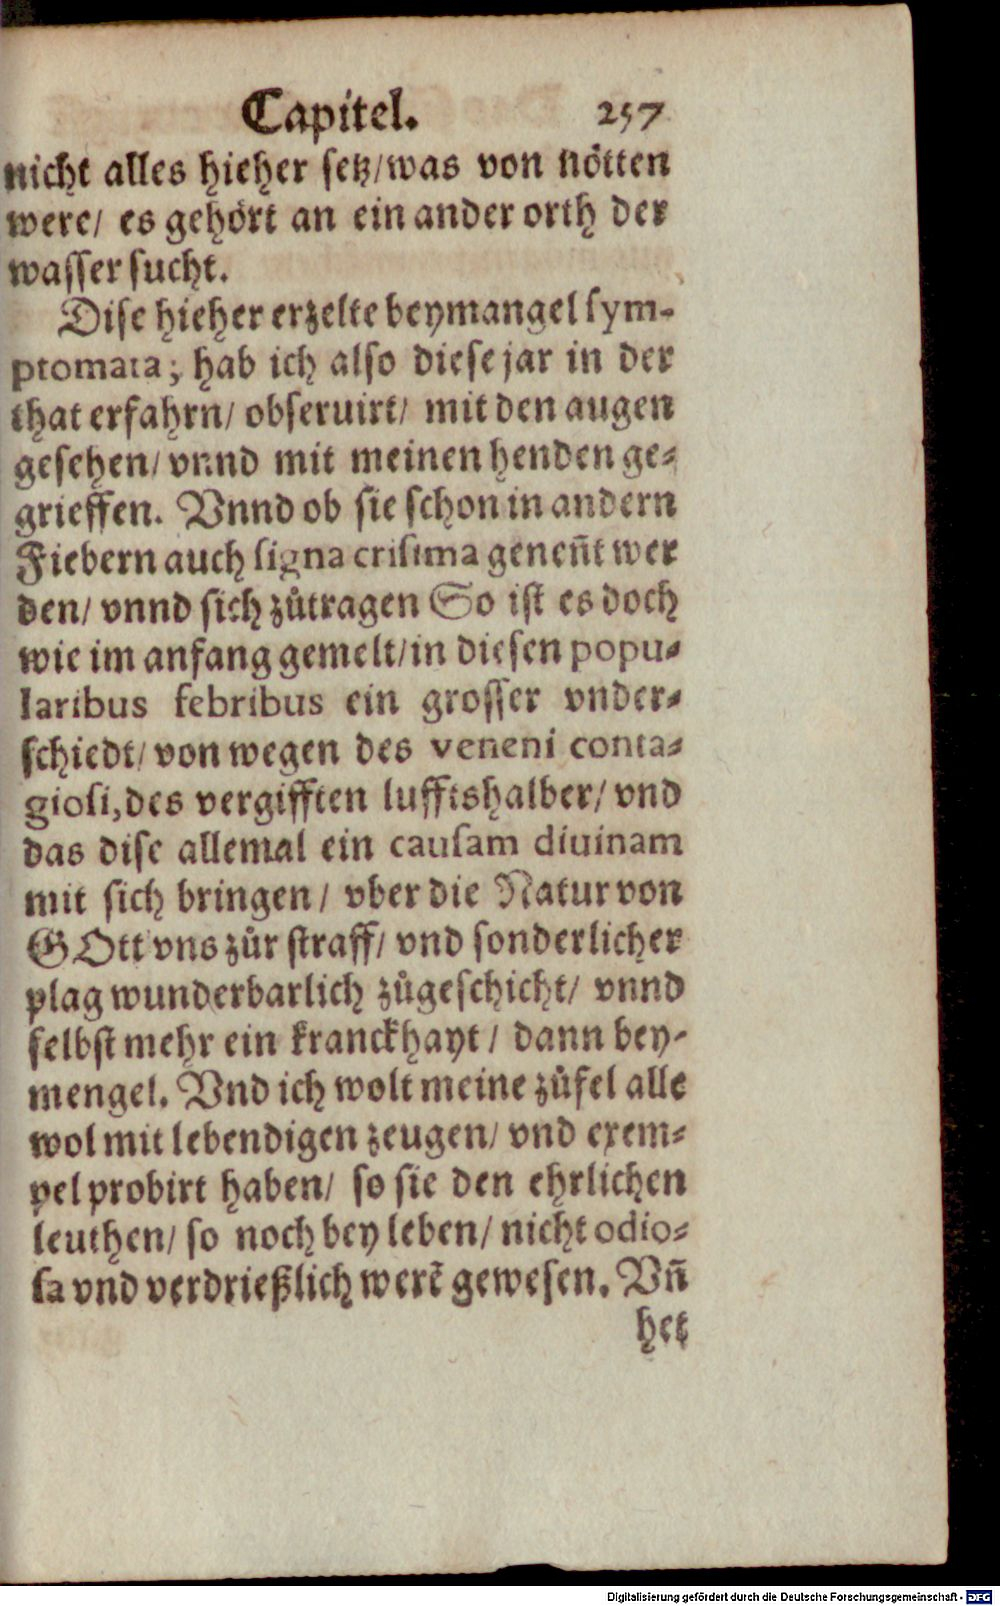 Capitel. 257
nicht alles hieher setz/was von nötten
were/ es gehört an ein ander orth der
wasser sucht.
Dise hieher erzelte beymangel sym-
ptomata; hab ich also diese jar in der
that erfahrn/ obseruirt/ mit den augen
gesehen/ vnnd mit meinen henden ge-
grieffen. Vnnd ob sie schon in andern
Fiebern auch signa crisima geneñt wer
den/ vnnd sich zůtragen So ist es doch
wie im anfang gemelt/in diesen popu-
laribus febribus ein grosser vnder-
schiedt/ von wegen des veneni conta-
giosi,des vergifften luffts halber/ vnd
das dise allemal ein causam diuinam
mit sich bringen/ vber die Natur von
GOtt vns zůr straff/ vnd sonderlicher
plag wunderbarlich zůgeschicht/ vnnd
selbst mehr ein kranckhayt/ dann bey-
mengel. Vnd ich wolt meine zůfel alle
wol mit lebendigen zeugen/ vnd exem-
pel probirt haben/ so sie den ehrlichen
leuthen/ so noch bey leben/ nicht odio-
sa vnd verdrießlich werẽ gewesen. Vñ
het
Digitalisierung gefördert durch die Deutsche Forschungsgemeinschaft - DFG